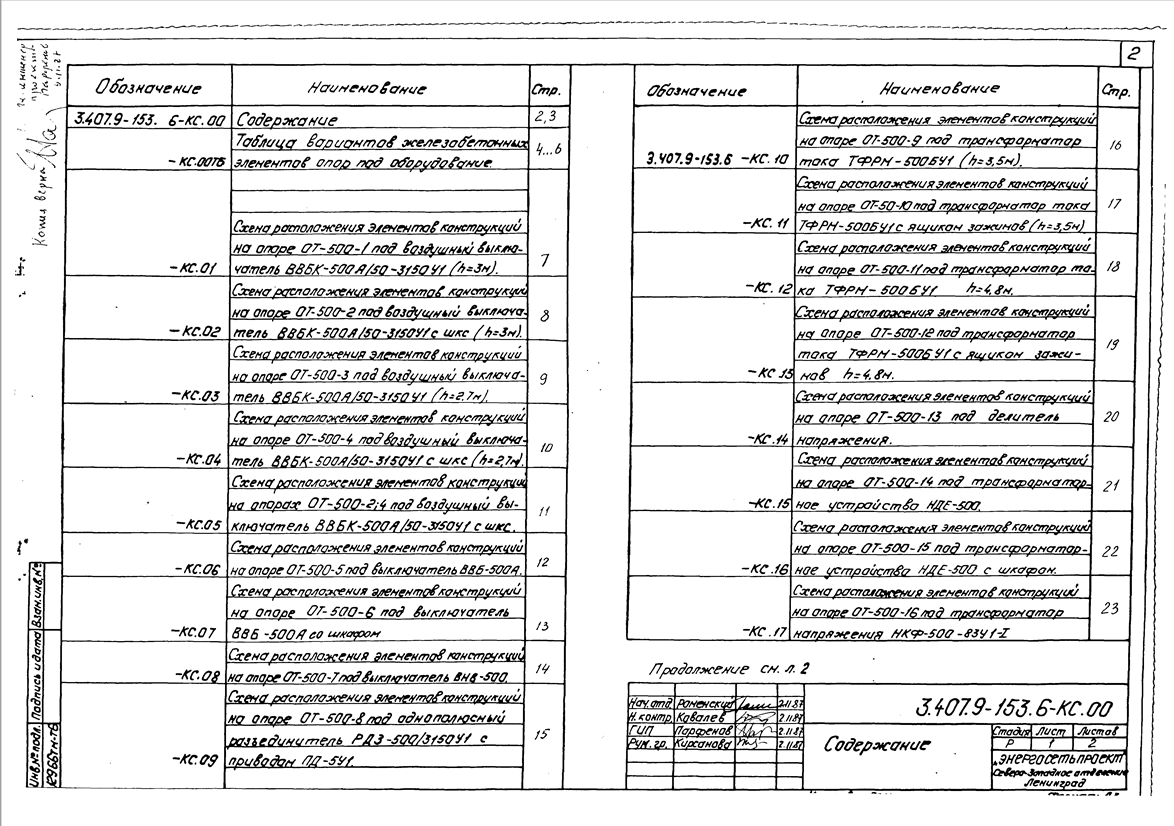 2
Обозначение Наименование Стр.
3.407.9-153. 6-КС.00 Содержание 2,3
Таблица вариантов железобетонных
-КС.00ТБ элементов опор под оборудование. 4...6
Схема расположения элементов конструкций
на опоре ОТ-500-1 под воздушный выклю-
-КС.01 чатель ВВБК-500А/50-3150У1 (h=3м). 7
Схема расположения элементов конструкций
на опоре ОТ-500-2 под воздушный выключа- 8
-КС.02 тель ВВБК-500А/50-3150У1 с шкс (h=3м).
Схема расположения элементов конструкций
на опоре ОТ-500-3 под воздушный выключа- 9
-КС.03 тель ВВБК-500А/50-3150У1 (h=2,7м).
Схема расположения элементов конструкций
на опоре ОТ-500-4 под воздушный выключа- 10
-КС.04 тель ВВБК-500А/50-3150У1 с шкс (h=2,7м).
Схема расположения элементов конструкций
на опорах ОТ-500-2;4 под воздушный вы- 11
-КС.05 ключатель ВВБК-500А/50-3150У1 с шкс.
Схема расположения элементов конструкций 12
-КС.06 на опоре ОТ-500-5 под выключатель ВВБ-500А.
Схема расположения элементов конструкций
на опоре ОТ-500-6 под выключатель 13
-КС.07 ВВБ-500А со шкафом
Схема расположения элементов конструкций 14
-КС.08 на опоре ОТ-500-7 под выключатель ВНВ-500.
Схема расположения элементов конструкций
на опоре ОТ-500-8 под однополюсный 15
разъединитель РДЗ-500/3150У1 с
-КС.09 приводом ПД-5У1.
Обозначение Наименование Стр.
Схема расположения элементов конструкций
на опоре ОТ-500-9 под трансформатор 16
3.407.9-153.6 -КС.10 тока ТФРМ-500БУ1 (h=3,5м).
Схема расположения элементов конструкций
на опоре ОТ-50-10 под трансформатор тока 17
-КС.11 ТФРМ-500БУ1 с ящиком зажимов (h=3,5м)
Схема расположения элементов конструкций
на опоре ОТ-500-11 под трансформатор то- 18
-КС.12 ка ТФРМ-500БУ1 h=4,8м.
Схема расположения элементов конструкций
на опоре ОТ-500-12 под трансформатор 19
тока ТФРМ-500БУ1 с ящиком зажи-
-КС.13 мов h=4,8м.
Схема расположения элементов конструкций
на опоре ОТ-500-13 под делитель 20
-КС.14 напряжения.
Схема расположения элементов конструкций
на опоре ОТ-500-14 под трансформатор- 21
-КС.15 ное устройства НДЕ-500.
Схема расположения элементов конструкций
на опоре ОТ-500-15 под трансформатор- 22
-КС.16 ное устройства НДЕ-500 с шкафом.
Схема расположения элементов конструкций
на опоре ОТ-500-16 под трансформатор 23
-КС.17 напряжения НКФ-500-83У1-I
Продолжение см. л. 2
Нач.отд. Роменский 2.11.87
Н.контр. Ковалев 2.11.87
ГИП Парфенов 2.11.87
Рук. гр. Кирсанова 2.11.87
3.407.9-153.6-КС.00
Содержание
Стадия Лист Листов
Р 1 2
„ЭНЕРГОСЕТЬПРОЕКТ"
Северо-Западное отделение
Ленинград
Копия верна
Инв.№подл. Подпись и дата Взам.инв.№